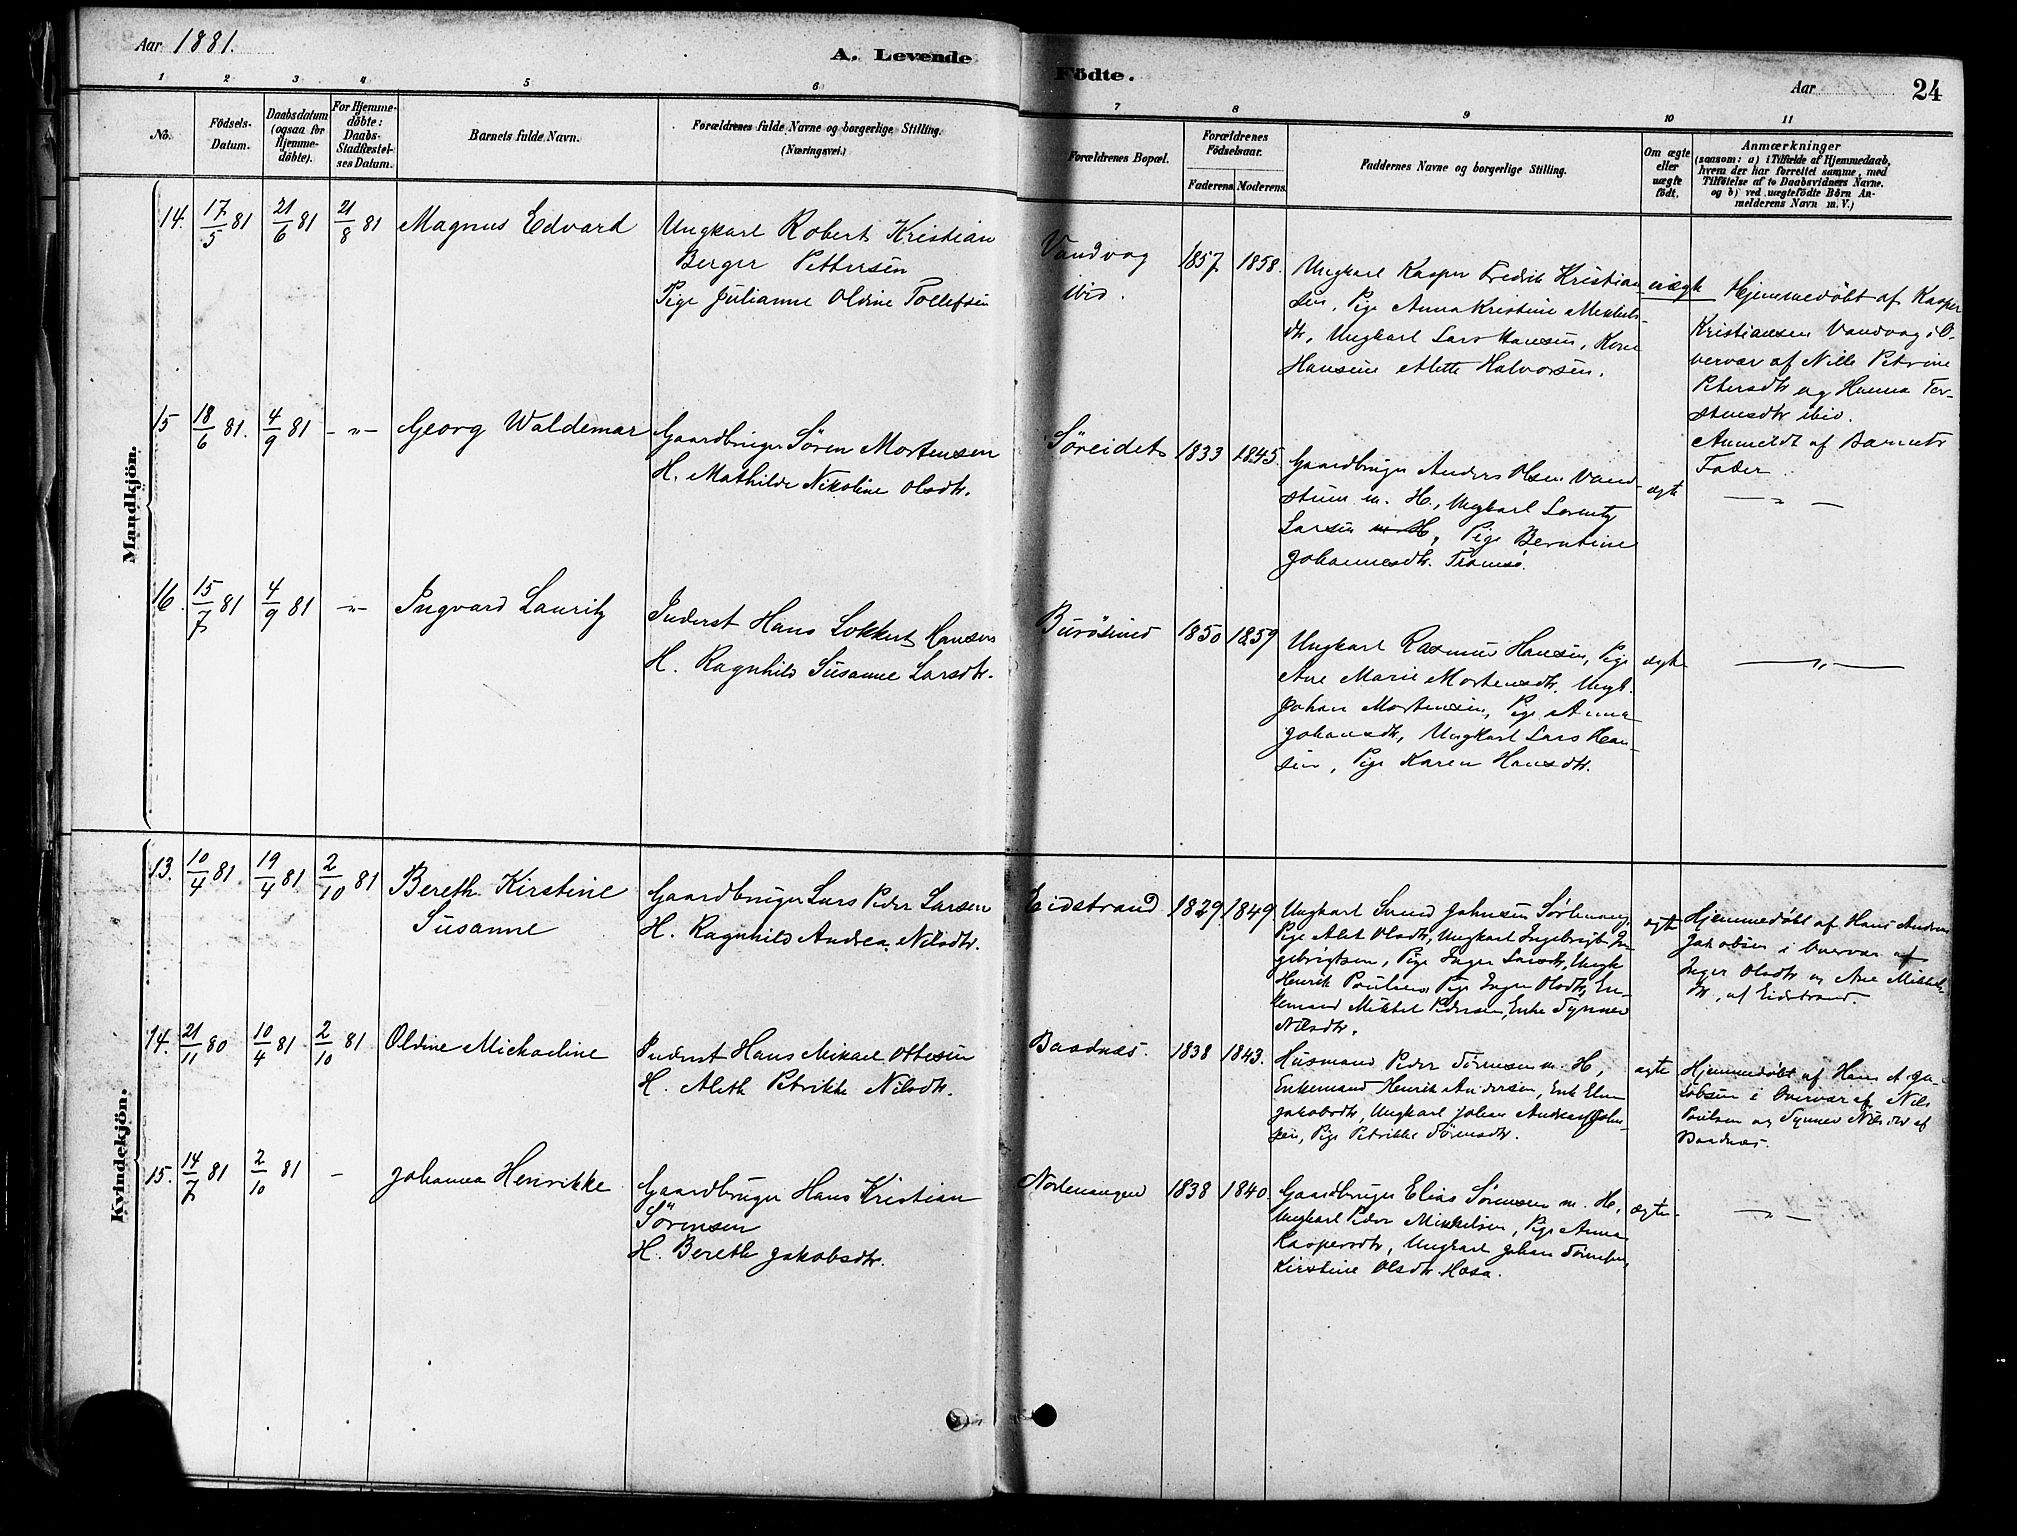 Aar 1881.
A. Levende
Födte.
Aar
24
1 2 3 4 5 6
7 8 9 10 11
No.
Födsels-
Datum.
Daabsdatum
(ogsaa for
Hjemme-
døbte).
For Hjemme-
døbte:
Daabs-
Stadfæstel-
ses Datum.
Barnets fulde Navn.
Forældrenes fulde Navne og borgerlige Stilling.
(Næringsvei.)
Forældrenes Bopæl.
Forældrenes
Födselsaar.
Faderens. Moderens.
Faddernes Navne og borgerlige Stilling.
Om ægte
eller
uægte
født.
Anmærkninger
(saasom: a) i Tilfælde af Hjemmedaab,
hvem der har forrettet samme, med
Tilføielse af to Daabsvidners Navne.
og b) ved uægtefödte Börn An-
melderens Navn m. V.)
Mandkjön.
14. 17/5 81 21/6 81 21/8 81 Magnus Edvard
Ungkarl Robert Kristian
Berger Pettersen
Pige Julianne Oldine Tollefsen
Vandvag
ibid.
1857 1858.
Ungkarl Kasper Fredrik Kristian-
sen, Pige Anna Kristine Mikkels-
dtr, Ungkarl Lars Hansen, Kone
Hansine Alette Halvorsen.
uægte
Hjemmedøbt af Kasper
Kristiansen Vandvag i O-
vervær af Nille Petrine
Petersdtr og Hanna Tor-
stensdtr ibid.
Anmeldt af Barnets
Fader.
15 18/6 81. 4/9 81 -"- Georg Waldemar
Gaardbruger Sören Mortensen
H. Mathilde Nikoline Olsdtr.
Søreidet 1833 1845.
Gaardbruger Anders Olsen Vand-
strøm m. H., Ungkarl Lorentz
Larsen m H, Pige Berntine
Johannesdtr. Tromsø.
ægte
- " -
16. 15/7 81 4/9 81 -"- Ingvard Lauritz
Inderst Hans Lokkert Hansen
H. Ragnhild Susanne Larsdtr.
Burøsund 1850 1859
Ungkarl Rasmus Hansen, Pige
Ane Marie Mortensdtr. Ungk.
Johan Mortensen, Pige Anna
Johansdtr, Ungkarl Lars Han-
sen, Pige Karen Hansdtr.
ægte
- " -
Kvindekjön.
13. 10/4 81 19/4 81 2/10 81 Bereth Kirstine
Susanne
Gaardbruger Lars Peder Larsen
H. Ragnhild Andrea Nilsdtr.
Eidstrand 1829 1849
Ungkarl Svend Johnsen
Pige Alet Olsdtr, Ungkarl Ingebrigt In-
gebrigtsen, Pige Inger Larsdtr, Ungk
Henrik Paulsen, Pige Inger Olsdtr, En-
kemand Mikkel Pedersen, Enke Synnev
Nilsdtr.
ægte
Hjemmedøbt af Hans Andreas
Jakobsen i Overvær af
Inger Olsdtr og Ane Mikkels-
dtr, af Eidstrand.
14. 21/11 80 10/4 81 2/10 81 Oldine Michaeline
Inderst Hans Mikael Ottesen
H. Aleth Petrikke Nilsdtr.
Baadnæs. 1838 1843.
Husmand Peder Sørensen m. H,
Enkemand Henrik Andersen, Enke Elen
Jakobsdtr, Ungkarl Johan Andreas John-
sen, Pige Petrikke Sørensdtr.
ægte
Hjemmedøbt af Hans A. Ja-
kobsen i Overvær af Nils
Poulsen og Synnev Nilsdtr af
Baadnæs.
15. 14/7 81 2/10 81 - Johanna Henrikke
Gaardbruger Hans Kristian
Sörensen
H. Bereth Jakobsdtr.
Nordenangen 1838 1840.
Gaardbruger Elias Sørensen m. H,
Ungkarl Peder Mikkelsen, Pige Anna
Kaspersdtr, Ungkarl Johan
Kirstine Olsdtr.
ægte
- " -